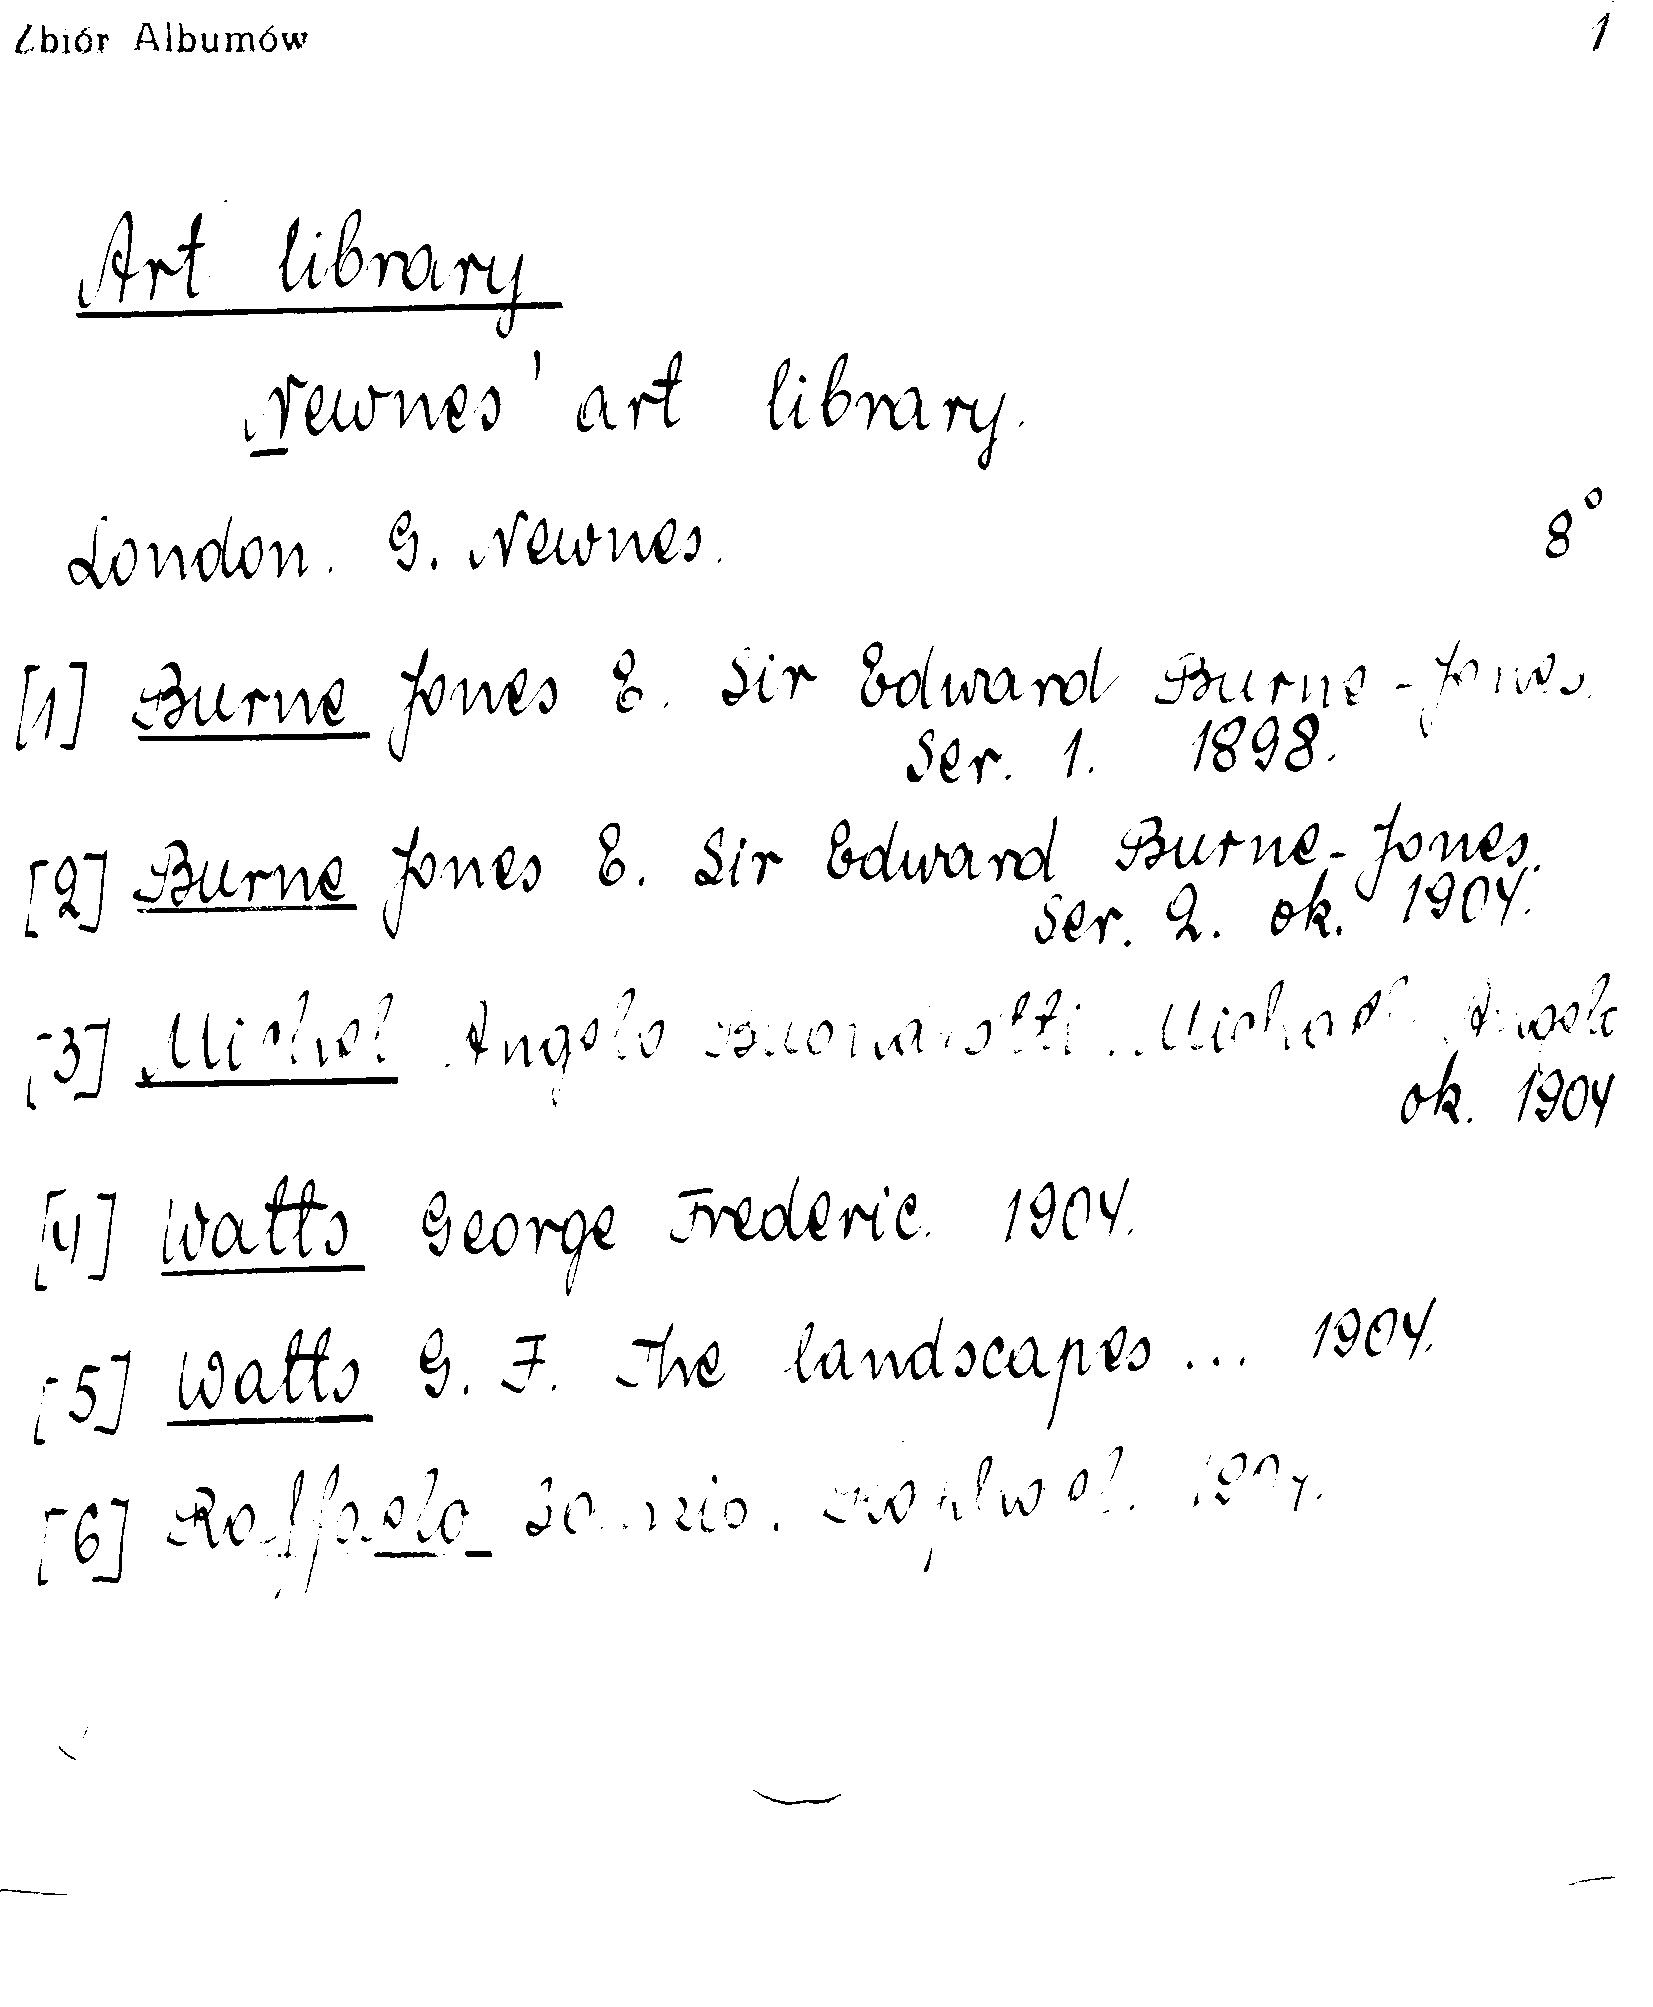 Zbiór Albumów 1
Art library
Newnes' art library.
London. G. Newnes. 8°
[1] Burne Jones E. Sir Edward Burne-Jones.
Ser. 1. 1898.
[2] Burne Jones E. Sir Edward Burne-Jones.
Ser. 2. ok. 1904.
[3] Michel Angelo Buonarotti. Michael Angelo
ok. 1904
[4] Watts George Frederic. 1904.
[5] Watts G. F. The landscapes ... 1904.
[6] Raffaelo Sanzio. Raphael. 1904.